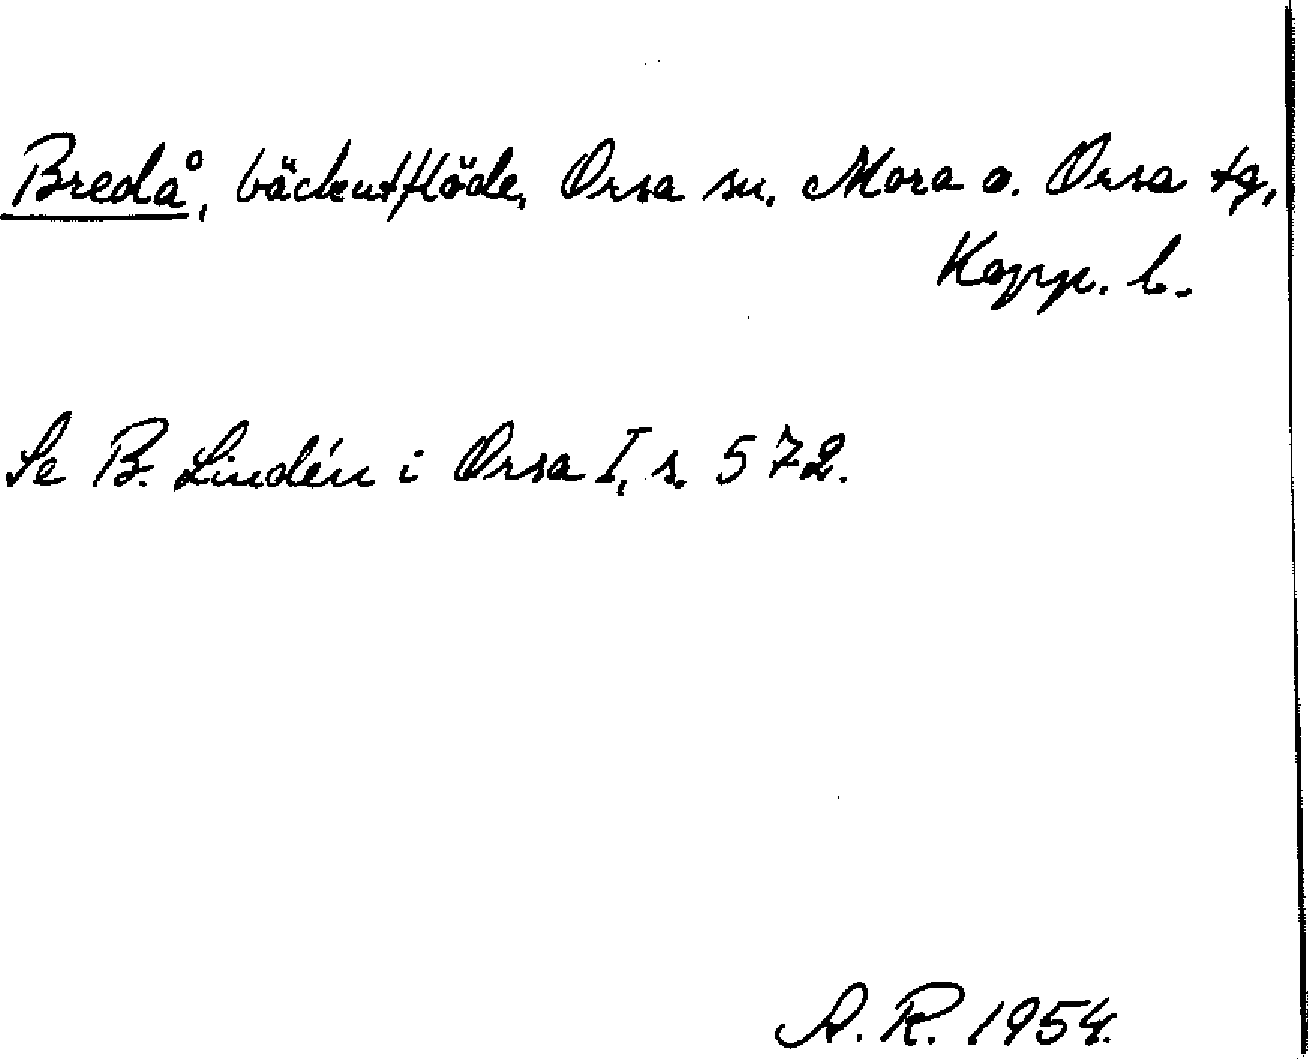 Bredå, bäckutflöde, Orsa sn. Mora o. Orsa tg,
Kopp. l.
Se B. Lindén i Orsa I, s. 572.
A. R. 1954.